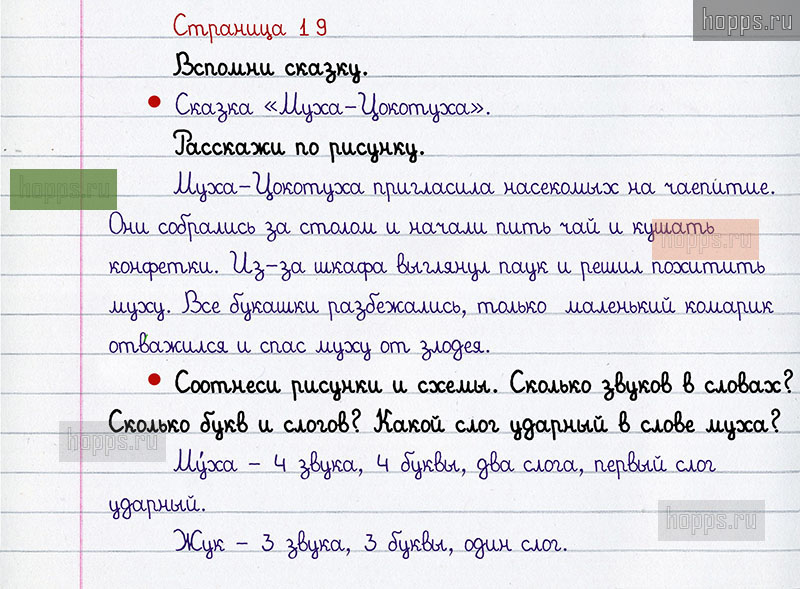 Страница 19
hopps.ru
Вспомни сказку.
• Сказка «Муха-Цокотуха».
Расскажи по рисунку.
hopps.ru
Муха-Цокотуха пригласила насекомых на чаепитие.
Они собрались за столом и начали пить чай и кушать
hopps.ru
конфетки. Из-за шкафа выглянул паук и решил похитить
муху. Все букашки разбежались, только маленький комарик
отважился и спас муху от злодея.
• Соотнеси рисунки и схемы. Сколько звуков в словах?
Сколько букв и слогов? Какой слог ударный в слове муха?
hopps.ru
Му́ха – 4 звука, 4 буквы, два слога, первый слог
ударный.
hopps.ru
Жук – 3 звука, 3 буквы, один слог.